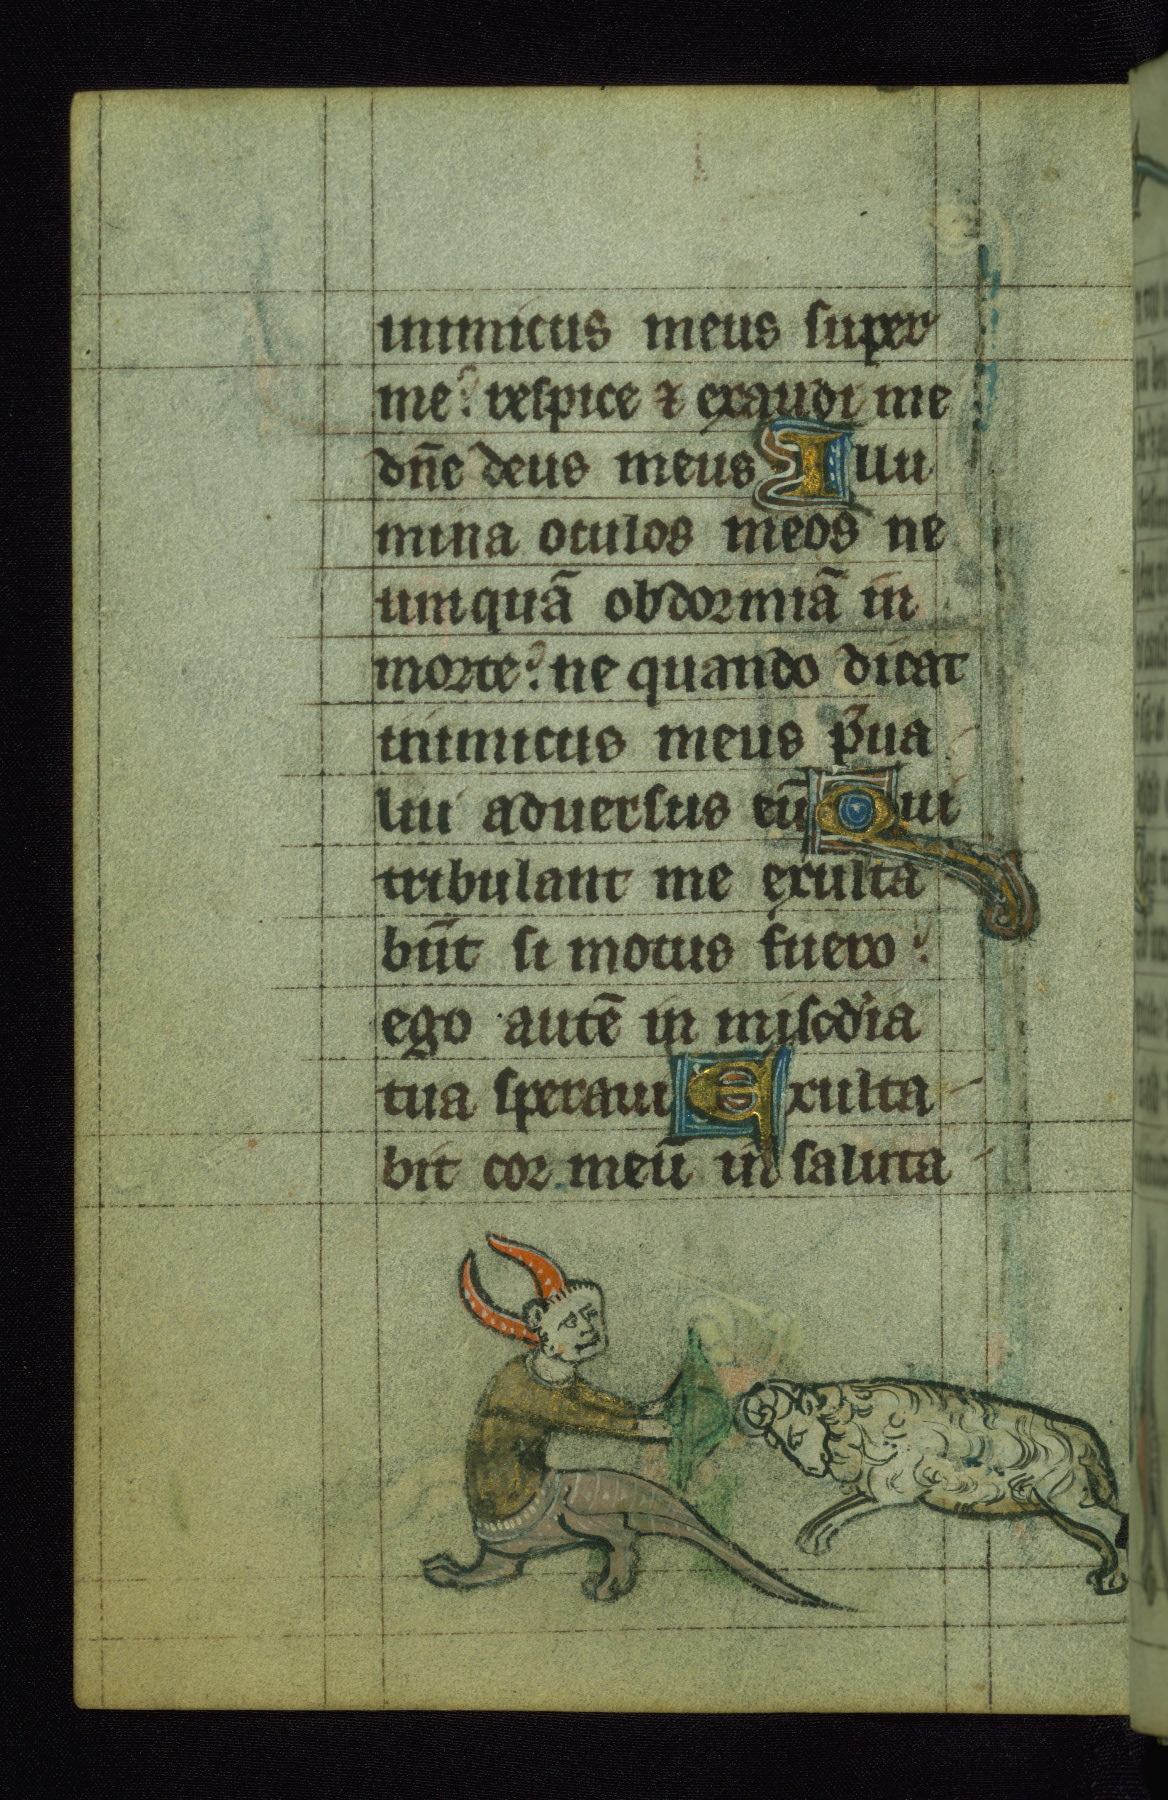 inimicus meus super
me? respice ⁊ exaudi me
dn̄e deus meus Illu
mina oculos meos ne
umquā obdormiā in
morte? ne quando dicat
inimicus meus p̄ua
lui aduersus eū Qui
tribulant me exulta
būt si motus fuero?
ego autē in mis̄c̄dia
tua speraui Exulta
bit cor meū in saluta